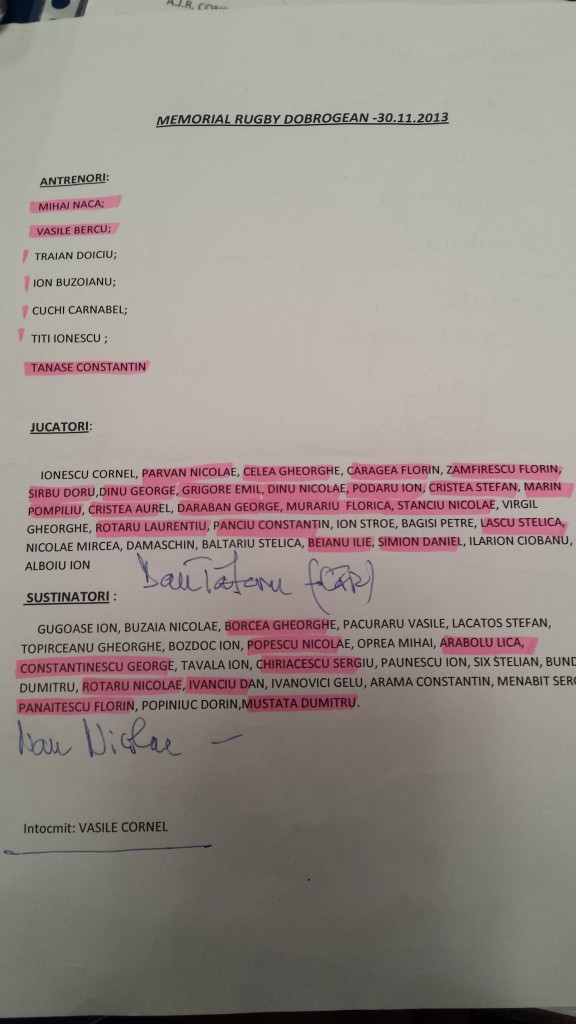 A.J.R. CONS
MEMORIAL RUGBY DOBROGEAN -30.11.2013
ANTRENORI:
MIHAI NACA;
VASILE BERCU;
TRAIAN DOICIU;
ION BUZOIANU;
CUCHI CARNABEL;
TITI IONESCU ;
TANASE CONSTANTIN
JUCATORI:
IONESCU CORNEL, PARVAN NICOLAE, CELEA GHEORGHE, CARAGEA FLORIN, ZAMFIRESCU FLORIN,
SIRBU DORU,DINU GEORGE, GRIGORE EMIL, DINU NICOLAE, PODARU ION, CRISTEA STEFAN, MARIN
POMPILIU, CRISTEA AUREL, DARABAN GEORGE, MURARIU FLORICA, STANCIU NICOLAE, VIRGIL
GHEORGHE, ROTARU LAURENTIU, PANCIU CONSTANTIN, ION STROE, BAGISI PETRE, LASCU STELICA,
NICOLAE MIRCEA, DAMASCHIN, BALTARIU STELICA, BEIANU ILIE, SIMION DANIEL, ILARION CIOBANU,
ALBOIU ION
Dan
SUSTINATORI :
GUGOASE ION, BUZAIA NICOLAE, BORCEA GHEORGHE, PACURARU VASILE, LACATOS STEFAN,
TOPIRCEANU GHEORGHE, BOZDOC ION, POPESCU NICOLAE, OPREA MIHAI, ARABOLU LICA,
CONSTANTINESCU GEORGE, TAVALA ION, CHIRIACESCU SERGIU, PAUNESCU ION, SIX STELIAN, BUND
DUMITRU, ROTARU NICOLAE, IVANCIU DAN, IVANOVICI GELU, ARAMA CONSTANTIN, MENABIT SERG
PANAITESCU FLORIN, POPINIUC DORIN,MUSTATA DUMITRU.
Nicolae —
Intocmit: VASILE CORNEL